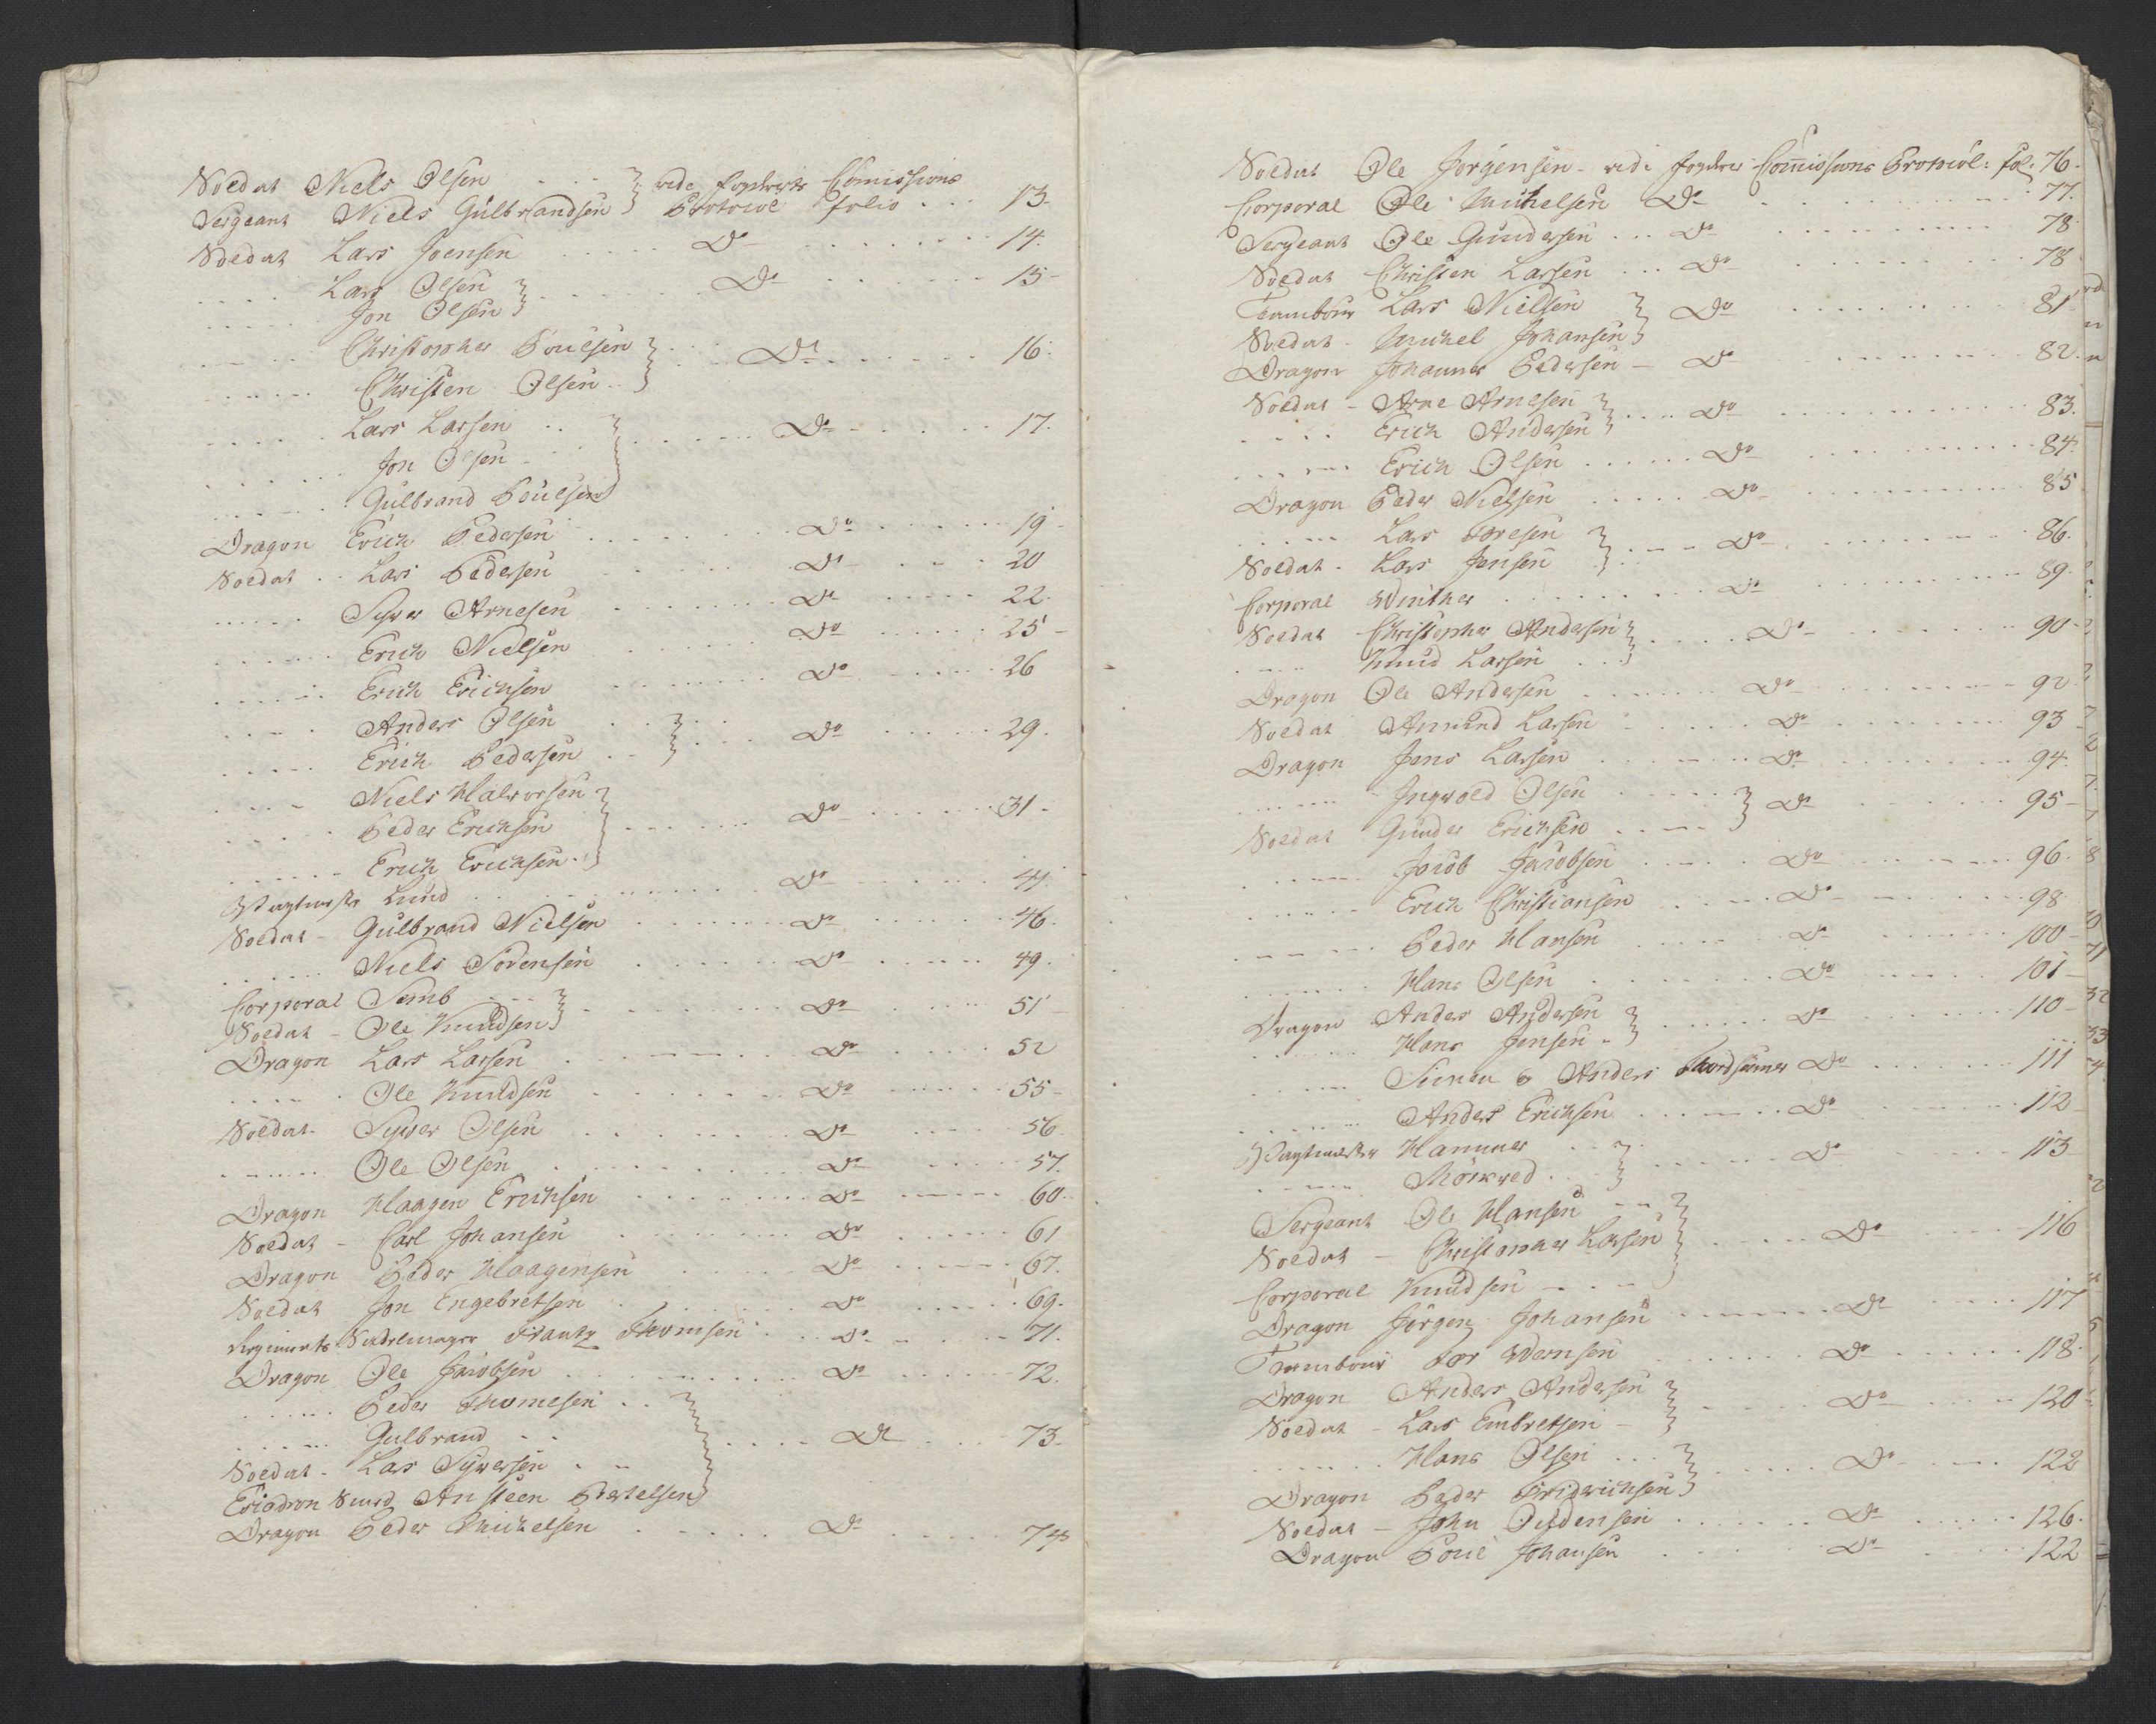 Soldat Niels Olsen . . . vide Fogderiets Comissions
Sergeant Niels Gulbrandsen Protocol folio . . . 13.
Soldat Lars Joensen . . . Do . . . 14.
. . . . Lars Olsen . . . Do . . . 15
. . . . Jon Olsen
. . . . Christopher Poulsen . . . Do . . . 16.
. . . . Christen Olsen . .
. . . . Lars Larsen . . . Do . . . 17.
. . . . Jon Olsen . . .
. . . . Gulbrand Poulsen
Dragon Erich Pedersen . . . Do . . . 19
Soldat . . Lars Pedersen . . . Do . . . 20
. . . . Syver Arnesen . . . Do . . . 22.
. . . . Erich Nielsen . . . Do . . . 25
. . . . Erich Erichsen . . . Do . . . 26
. . . . Anders Olsen . . . Do . . . 29.
. . . . Erich Pedersen . .
. . . . Niels Halvorsen
. . . . Peder Erichsen . . . Do . . . 31.
. . . . Erich Erichsen . .
Wagtmester Lund . . . Do . . . 41.
Soldat - Gulbrand Nielsen . . . Do . . . 46.
. . . . Niels Sörensen . . . Do . . . 49.
Corporal Semb . . . Do . . . 51
Soldat - Ole Knudsen
Dragon Lars Larsen . . . Do . . . 52
. . . . Ole Knudsen . . . Do . . . 55
Soldat. Syver Olsen . . . Do . . . 56
. . . . Ole Olsen . . . Do . . . 57.
Dragon Haagen Erichsen . . . Do . . . 60.
Soldat - Carl Johansen . . . Do . . . 61
Dragon Peder Haagensen . . . Do . . . 67.
Soldat Jon Engebretsen . . . Do . . . 69.
Regiments Sadelmager Frantz Thomsen . . . Do . . . 71.
Dragon Ole Jacobsen . . . Do . . . 72.
. . . . Peder Thomesen . .
. . . . Gulbrand . . . Do . . . 73.
Soldat . Lars Syversen . .
Ansteen Bertelsen
Dragon Peder Michelsen . . . Do . . . 74
Soldat Ole Jörgensen - vide Fogderiets Comissions Protocol: fol: 76.
Corporal Ole Michelsen Do . . . 77.
Sergeant Ole Gundersen . . . Do . . . 78
Soldat Christen Larsen . . . Do . . . 78
Tambour Lars Nielsen . . . Do . . . 81
Soldat . Michel Johansen
Dragon Johannes Pedersen - Do . . . 82.
Soldat - Arne Arnesen . . . Do . . . 83.
. . . . Erich Andersen
. . . . Erich Olsen . . . Do . . . 84.
Dragon Peder Nielsen . . . Do . . . 85
. . . . Lars Toresen . . . Do . . . 86.
Soldat . Lars Jensen
Corporal Winther . . . Do . . . 89.
Soldat Christopher Andersen . . . Do . . . 90
. . . . Knud Larsen . . .
Dragon Ole Andersen . . . Do . . . 92
Soldat Amund Larsen . . . Do . . . 93
Dragon Jens Larsen . . . Do . . . 94.
. . . . Ingwold Olsen . . . Do . . . 95
Soldat Gunder Erichsen . . .
. . . . Jacob Jacobsen . . . Do . . . 96.
. . . . Erich Christiansen . . . Do . . . 98
. . . . Peder Hansen . . . Do . . . 100
. . . . Hans Olsen . . . Do . . . 101
Dragon Anders Andersen . . . Do . . . 110
. . . . Hans Jensen .
. . . . Simen & Anders Do . . . 111
. . . . Anders Erichsen . . . Do . . . 112
Wagtmester Hammer . . . Do . . . 113
. . . . Mörkved . .
Sergeant Ole Hansen . . .
Soldat - Christopher Larsen . . . Do . . . 116
Corporal Knudsen . . .
Dragon Jörgen Johansen . . . Do . . . 117
Tambour Tor Wernsen . . . Do . . . 118.
Dragon Anders Andersen . . . Do . . . 120
Soldat - Lars Embretsen -
. . . . Hans Olsen . . . Do . . . 122
Dragon Peder Friderichsen
Soldat - John Oudensen . . . Do . . . 126.
Dragon Poul Johansen . . . Do . . . 122